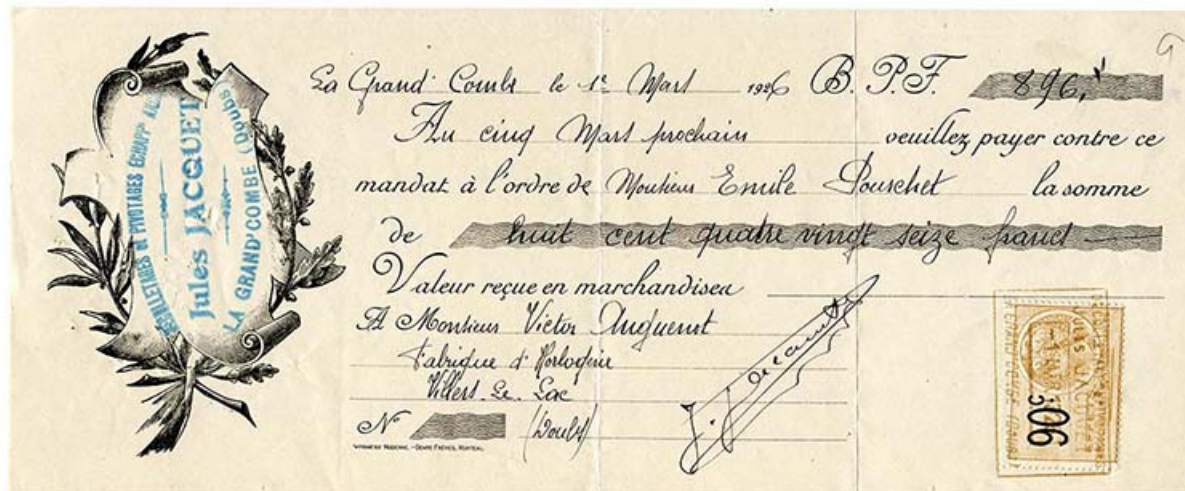 DÉCOLLETAGES & PIVOTAGES ÉCHAPPts
Jules JACQUET
LA GRAND'COMBE (Doubs)
La Grand' Combe le 1er Mars 1926 B. P. F. 896,
Au cinq Mars prochain veuillez payer contre ce
mandat à l'ordre de Monsieur Emile Pourchet la somme
de huit cent quatre vingt seize francs
Valeur reçue en marchandises
A Monsieur Victor Anguenot
Fabrique d'Horlogerie
Villers-Le-Lac
No (Doubs)
IMPRIMERIE MODERNE. - DEMRE FRÈRES, MORTEAU.